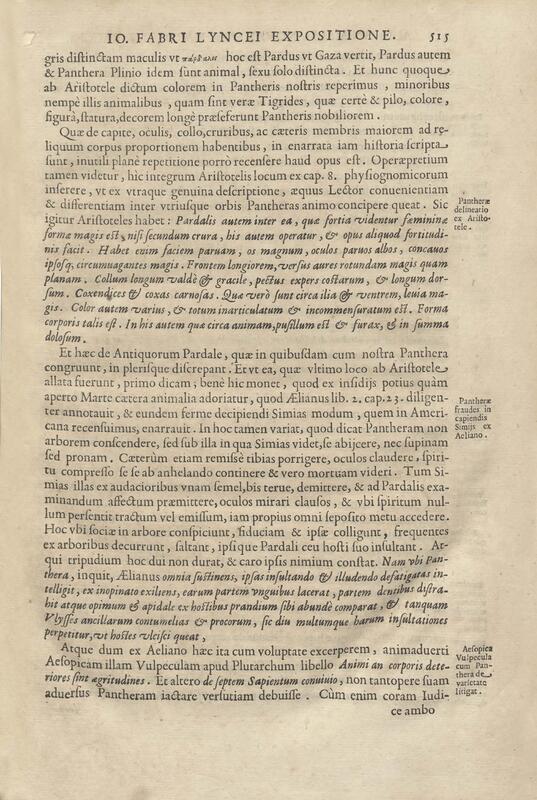 IO. FABRI LYNCEI EXPOSITIONE. 515
gris distinctam maculis vt hoc est Pardus vt Gaza vertit, Pardus autem
& Panthera Plinio idem sunt animal, sexu solo distincta. Et hunc quoque
ab Aristotele dictum colorem in Pantheris nostris reperimus, minoribus
nempè illis animalibus, quam sint veræ Tigrides, quæ certè & pilo, colore,
figurâ, statura, decorem longè præseferunt Pantheris nobiliorem.
Quæ de capite, oculis, collo, cruribus, ac cæteris membris maiorem ad re-
liquum corpus proportionem habentibus, in enarrata iam historia scripta
sunt, inutili planè repetitione porrò recensere haud opus est. Operæpretium
tamen videtur, hîc integrum Aristotelis locum ex cap. 8. physiognomicorum
inserere, vt ex vtraque genuina descriptione, æquus Lector conuenientiam
& differentiam inter vtriusque orbis Pantheras animo concipere queat. Sic
igitur Aristoteles habet: Pardalis autem inter ea, quæ fortia videntur fæmininæ
formæ magis est, nisi secundum crura, his autem operatur, & opus aliquod fortitudi-
nis facit. Habet enim faciem paruam, os magnum, oculos paruos albos, concauos
ipsosq; circumuagantes magis. Frontem longiorem, versus aures rotundam magis quam
planam. Collum longum valdè & gracile, pectus expers costarum, & longum dor-
sum. Coxendices & coxas carnosas. Quæ verò sunt circa ilia & ventrem, leuia ma-
gis. Color autem varius, & totum inarticulatum & incommensuratum est. Forma
corporis talis est. In his autem quæ circa animam, pusillum est & furax, & in summa
dolosum.
Pantheræ
delineatio
ex Aristo-
tele.
Et hæc de Antiquorum Pardale, quæ in quibusdam cum nostra Panthera
congruunt, in plerisque discrepant. Et vt ea, quæ vltimo loco ab Aristotele
allata fuerunt, primo dicam; benè hic monet, quod ex insidijs potius quàm
aperto Marte cætera animalia adoriatur, quod Ælianus lib. 2. cap. 23. diligen-
ter annotauit, & eundem ferme decipiendi Simias modum, quem in Ameri-
cana recensuimus, enarrauit. In hoc tamen variat, quod dicat Pantheram non
arborem conscendere, sed sub illa in qua Simias videt, se abijcere, nec supinam
sed pronam. Cæterùm etiam remissè tibias porrigere, oculos claudere, spiri-
tu compresso se se ab anhelando continere & vero mortuam videri. Tum Si-
mias illas ex audacioribus vnam semel, bis terue, demittere, & ad Pardalis exa-
minandum affectum præmittere, oculos mirari clausos, & vbi spiritum nul-
lum persentit tractum vel emissum, iam propius omni seposito metu accedere.
Hoc vbi sociæ in arbore conspiciunt, fiduciam & ipsæ colligunt, frequentes
ex arboribus decurrunt, saltant, ipsique Pardali ceu hosti suo insultant. At-
qui tripudium hoc dui non durat, & caro ipsis nimium constat. Nam vbi Pan-
thera, inquit, Ælianus omnia sustinens, ipsas insultando & illudendo defatigatas in-
telligit, ex inopinato exiliens, earum partem vnguibus lacerat, partem dentibus distra-
hit atque opimum & apidale ex hostibus prandium sibi abundè comparat, & tanquam
Vlysses ancillarum contumelias & procorum, sic diu multumque harum insultationes
perpetitur, vt hostes vlcisci queat,
Pantheræ
fraudes in
capiendis
Simijs ex
Aeliano.
Atque dum ex Aeliano hæc ita cum voluptate excerperem, animaduerti
Aesopicam illam Vulpeculam apud Plutarchum libello Animi an corporis dete-
riores sint ægritudines. Et altero de septem Sapientum conuiuio, non tantopere suam
aduersus Pantheram iactare versutiam debuisse. Cùm enim coram Iudi-
ce ambo
Aesopica
Vulpecula
cum Pan-
thera de
varietate
litigat.